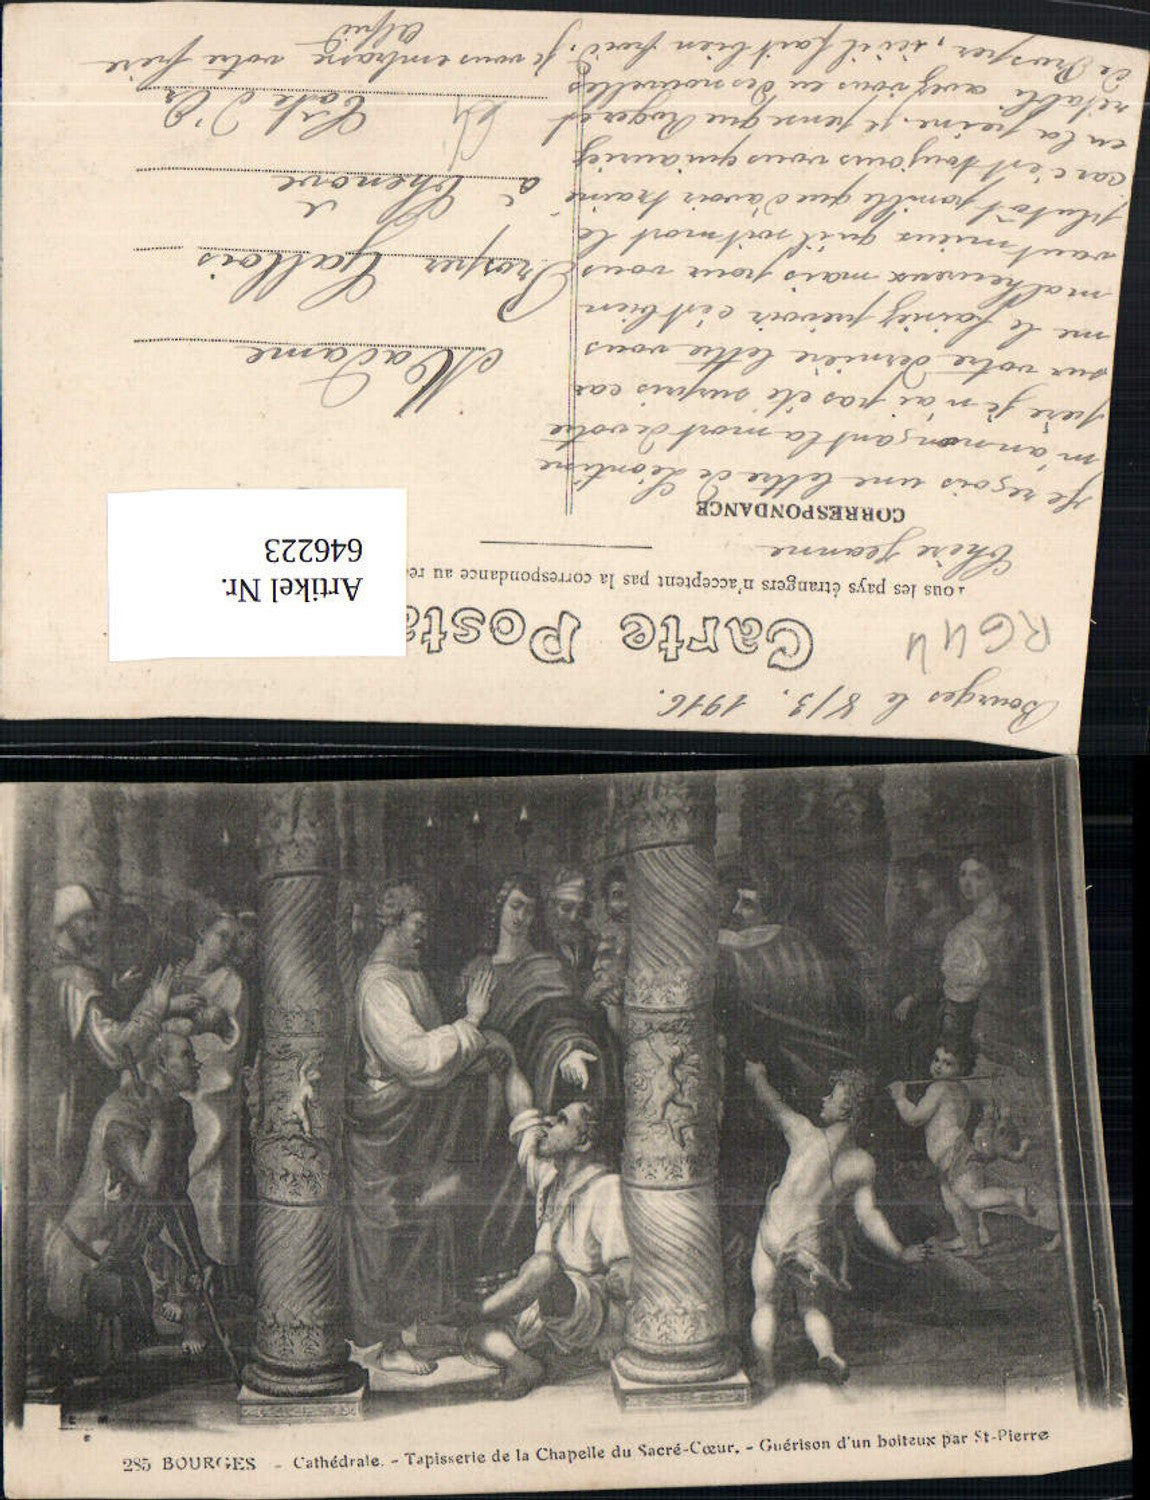 Bourges le 8/3. 1916.
RG44
Carte Posta
Tous les pays étrangers n'acceptent pas la correspondance au re
Chère Jeanne
CORRESPONDANCE
Je reçois une lettre de Léontine
m'annonçant la mort de votre
père je n'ai pas été surpris car
sur votre dernière lettre vous
me le faisiez prévoir c'est bien
malheureux mais pour vous
vaut mieux qu'il soit mort le
plutôt possible que d'avoir trainé
car c'est toujours vous qui auriez
eu la peine. je pense que Roger est
rétabli avez vous eu des nouvelles
de Prosper, ici il fait bien froid. Je vous embrasse votre frère
Alfred
Madame
Prosper Gallois
à Chenove
Côte d'Or
Artikel Nr.
646223
285 BOURGES - Cathédrale. - Tapisserie de la Chapelle du Sacré-Cœur. - Guérison d'un boiteux par St-Pierre